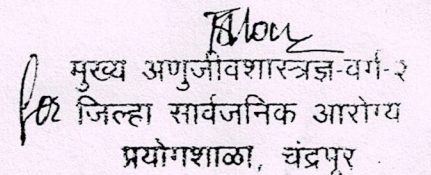 मुख्य अणुजीवशास्त्रज्ञ-वर्ग-२
for जिल्हा सार्वजनिक आरोग्य
प्रयोगशाळा, चंद्रपूर